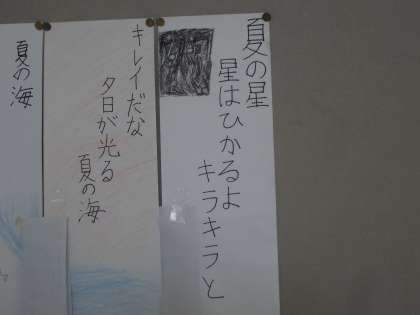 夏の星
星はひかるよ
キラキラと
キレイだな
夕日が光る
夏の海
夏の海